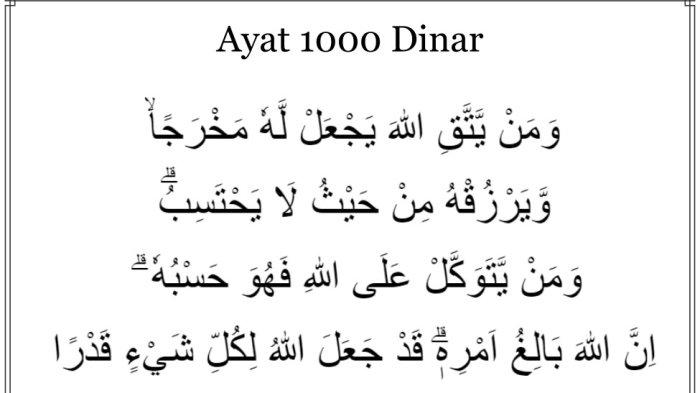 Ayat 1000 Dinar
وَمَنْ يَّتَّقِ اللهَ يَجْعَلْ لَّهٗ مَخْرَجًاۙ
وَّيَرْزُقْهُ مِنْ حَيْثُ لَا يَحْتَسِبُۗ
وَمَنْ يَّتَوَكَّلْ عَلَى اللهِ فَهُوَ حَسْبُهٗۗ
اِنَّ اللهَ بَالِغُ اَمْرِهٖۗ قَدْ جَعَلَ اللهُ لِكُلِّ شَيْءٍ قَدْرًا